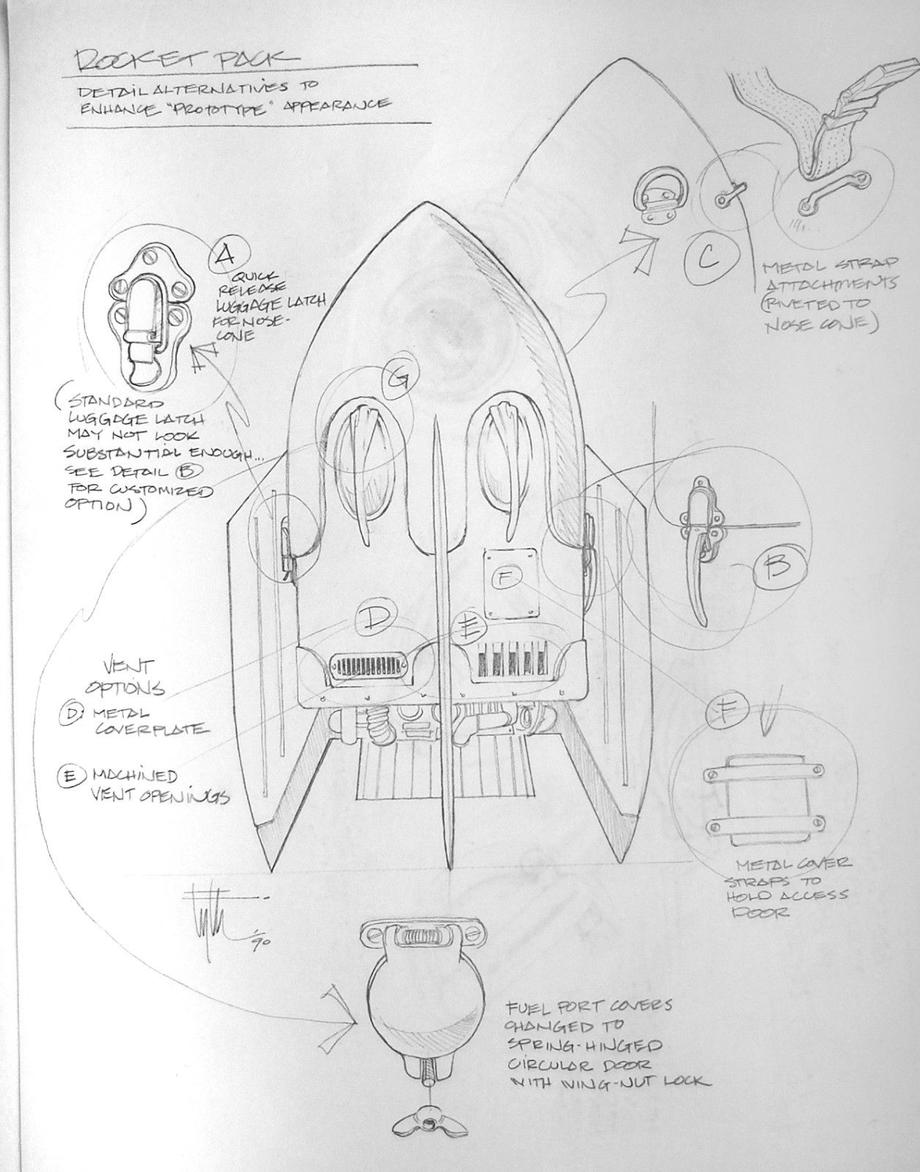 ROCKET PACK
DETAIL ALTERNATIVES TO
ENHANCE "PROTOTYPE" APPEARANCE
A
QUICK
RELEASE
LUGGAGE LATCH
FOR NOSE-
CONE
(STANDARD
LUGGAGE LATCH
MAY NOT LOOK
SUBSTANTIAL ENOUGH...
SEE DETAIL B
FOR CUSTOMIZED
OPTION)
C
METAL STRAP
ATTACHMENTS
(RIVETED TO
NOSE CONE)
G
B
F
D
E
VENT
OPTIONS
D: METAL
COVERPLATE
E MACHINED
VENT OPENINGS
F
METAL COVER
STRAPS TO
HOLD ACCESS
DOOR
'90
FUEL PORT COVERS
CHANGED TO
SPRING-HINGED
CIRCULAR DOOR
WITH WING-NUT LOCK